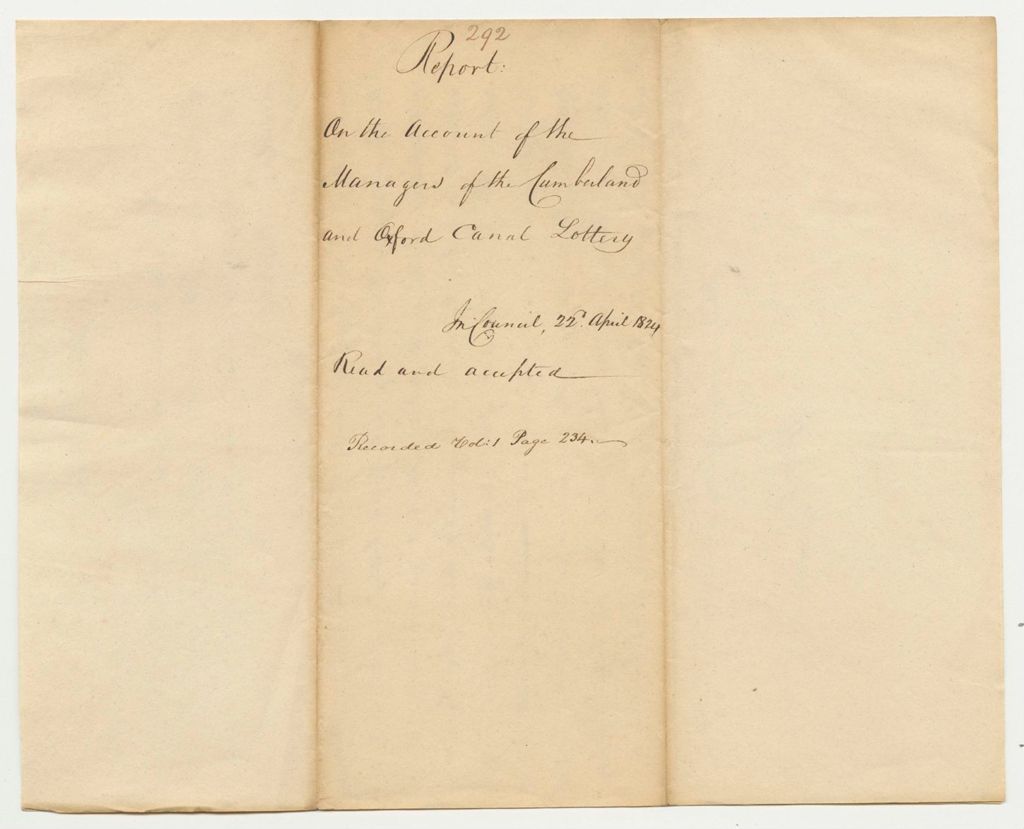 292
Report:
On the Account of the
Managers of the Cumberland
and Oxford Canal Lottery
In Council, 22d. April 1824
Read and accepted
Recorded Vol: 1 Page 234.